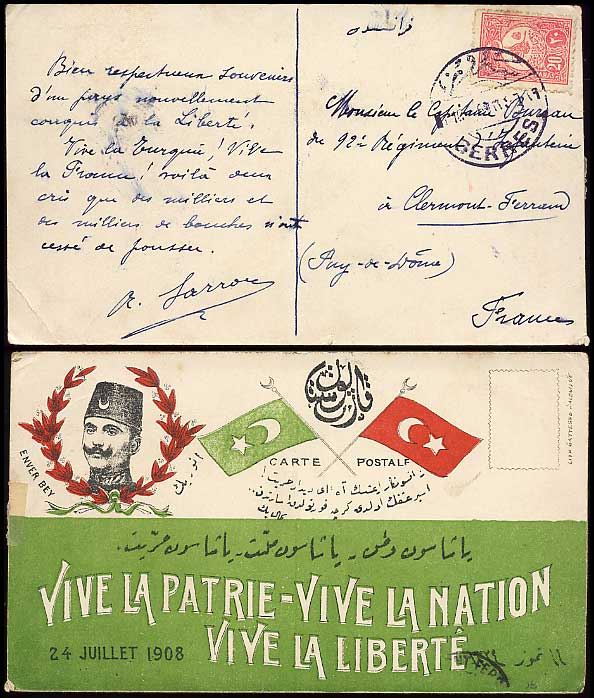 Bien respectueux souvenirs
d'un pays nouvellement
conquis à la Liberté.
Vive la Turquie! Vive
la France! voilà deux
cris que des milliers et
des milliers de bouches n'ont
cessé de pousser.
فرانسه
20
Monsieur le Capitaine
du 92e Régiment
à Clermont-Ferrand
(Puy-de-Dôme)
France
ENVER BEY
انور بك
CARTE POSTALE
كمال بك
ياشاسون وطن، ياشاسون ملت، ياشاسون حريت
VIVE LA PATRIE-VIVE LA NATION
VIVE LA LIBERTÉ
24 JUILLET 1908
١١ تموز